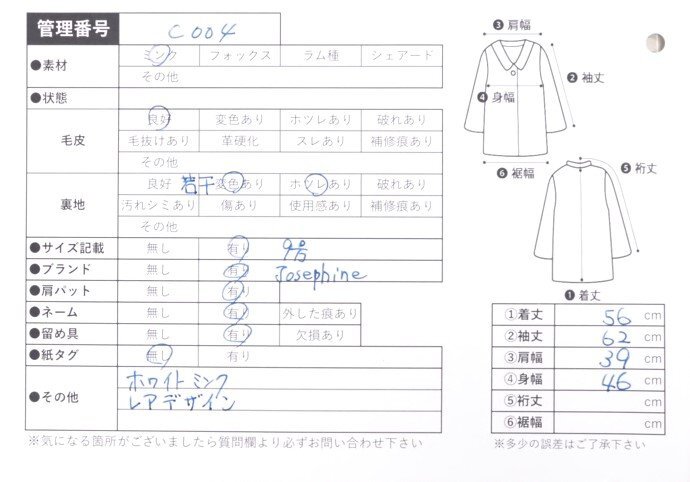 管理番号 C004
●素材 ミンク フォックス ラム種 シェアード
その他
●状態
毛皮 良好 変色あり ホツレあり 破れあり
毛抜けあり 革硬化 スレあり 補修痕あり
その他
裏地 良好 若干 変色あり ホツレあり 破れあり
汚れシミあり 傷あり 使用感あり 補修痕あり
その他
●サイズ記載 無し 有り 9号
●ブランド 無し 有り Josephine
●肩パット 無し 有り
●ネーム 無し 有り 外した痕あり
●留め具 無し 有り 欠損あり
●紙タグ 無し 有り
●その他 ホワイトミンク
レアデザイン
※気になる箇所がございましたら質問欄より必ずお問い合わせ下さい
❸肩幅
❷袖丈
❹身幅
❻裾幅
❺裄丈
❶着丈
①着丈 56 cm
②袖丈 62 cm
③肩幅 39 cm
④身幅 46 cm
⑤裄丈 cm
⑥裾幅 cm
※多少の誤差はご了承下さい